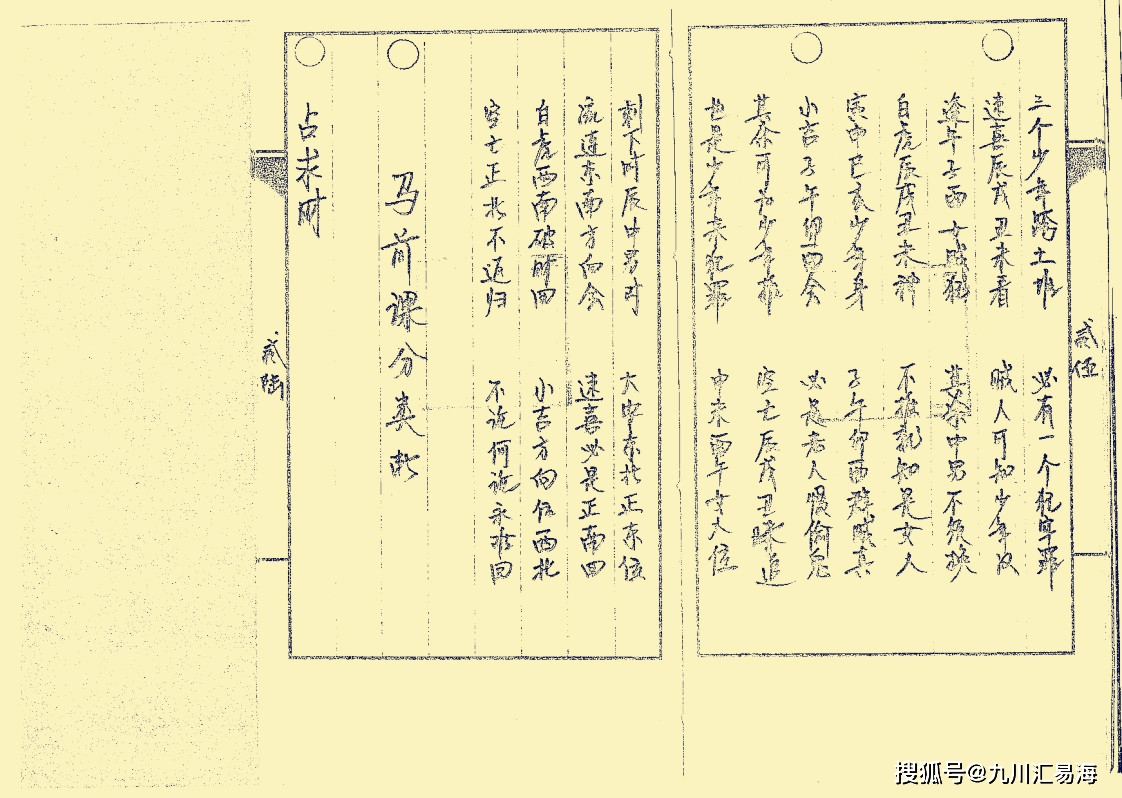 三个少年跨土堆 必有一个犯窄罪
速喜辰戌丑未看 贼人可知少年汉
逢午子酉女贼 其余中男不须换
自虎辰戌丑未神 不推就知是女人
寅申巳亥少年身 子午卯酉贼真
小吉子午卯酉会 必是老人惯偷
其余可为少年推 空亡辰戌丑未追
也是少年来犯罪 申未酉午女人位
刺下时辰中男对 大安东北正东位
流连东南方向会 速喜必是正南回
白虎西南破财回 小吉方向位西北
空亡正北不返归 不论何论永难回
马前课分类断
占求财
贰伍
贰陆
搜狐号@九川汇易海